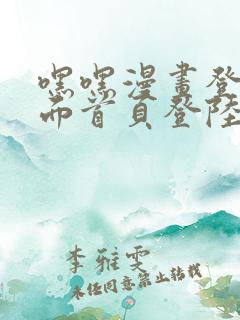 嘿嘿漫畫登
而首頁登陸
李雅雯
未經同意禁止轉載